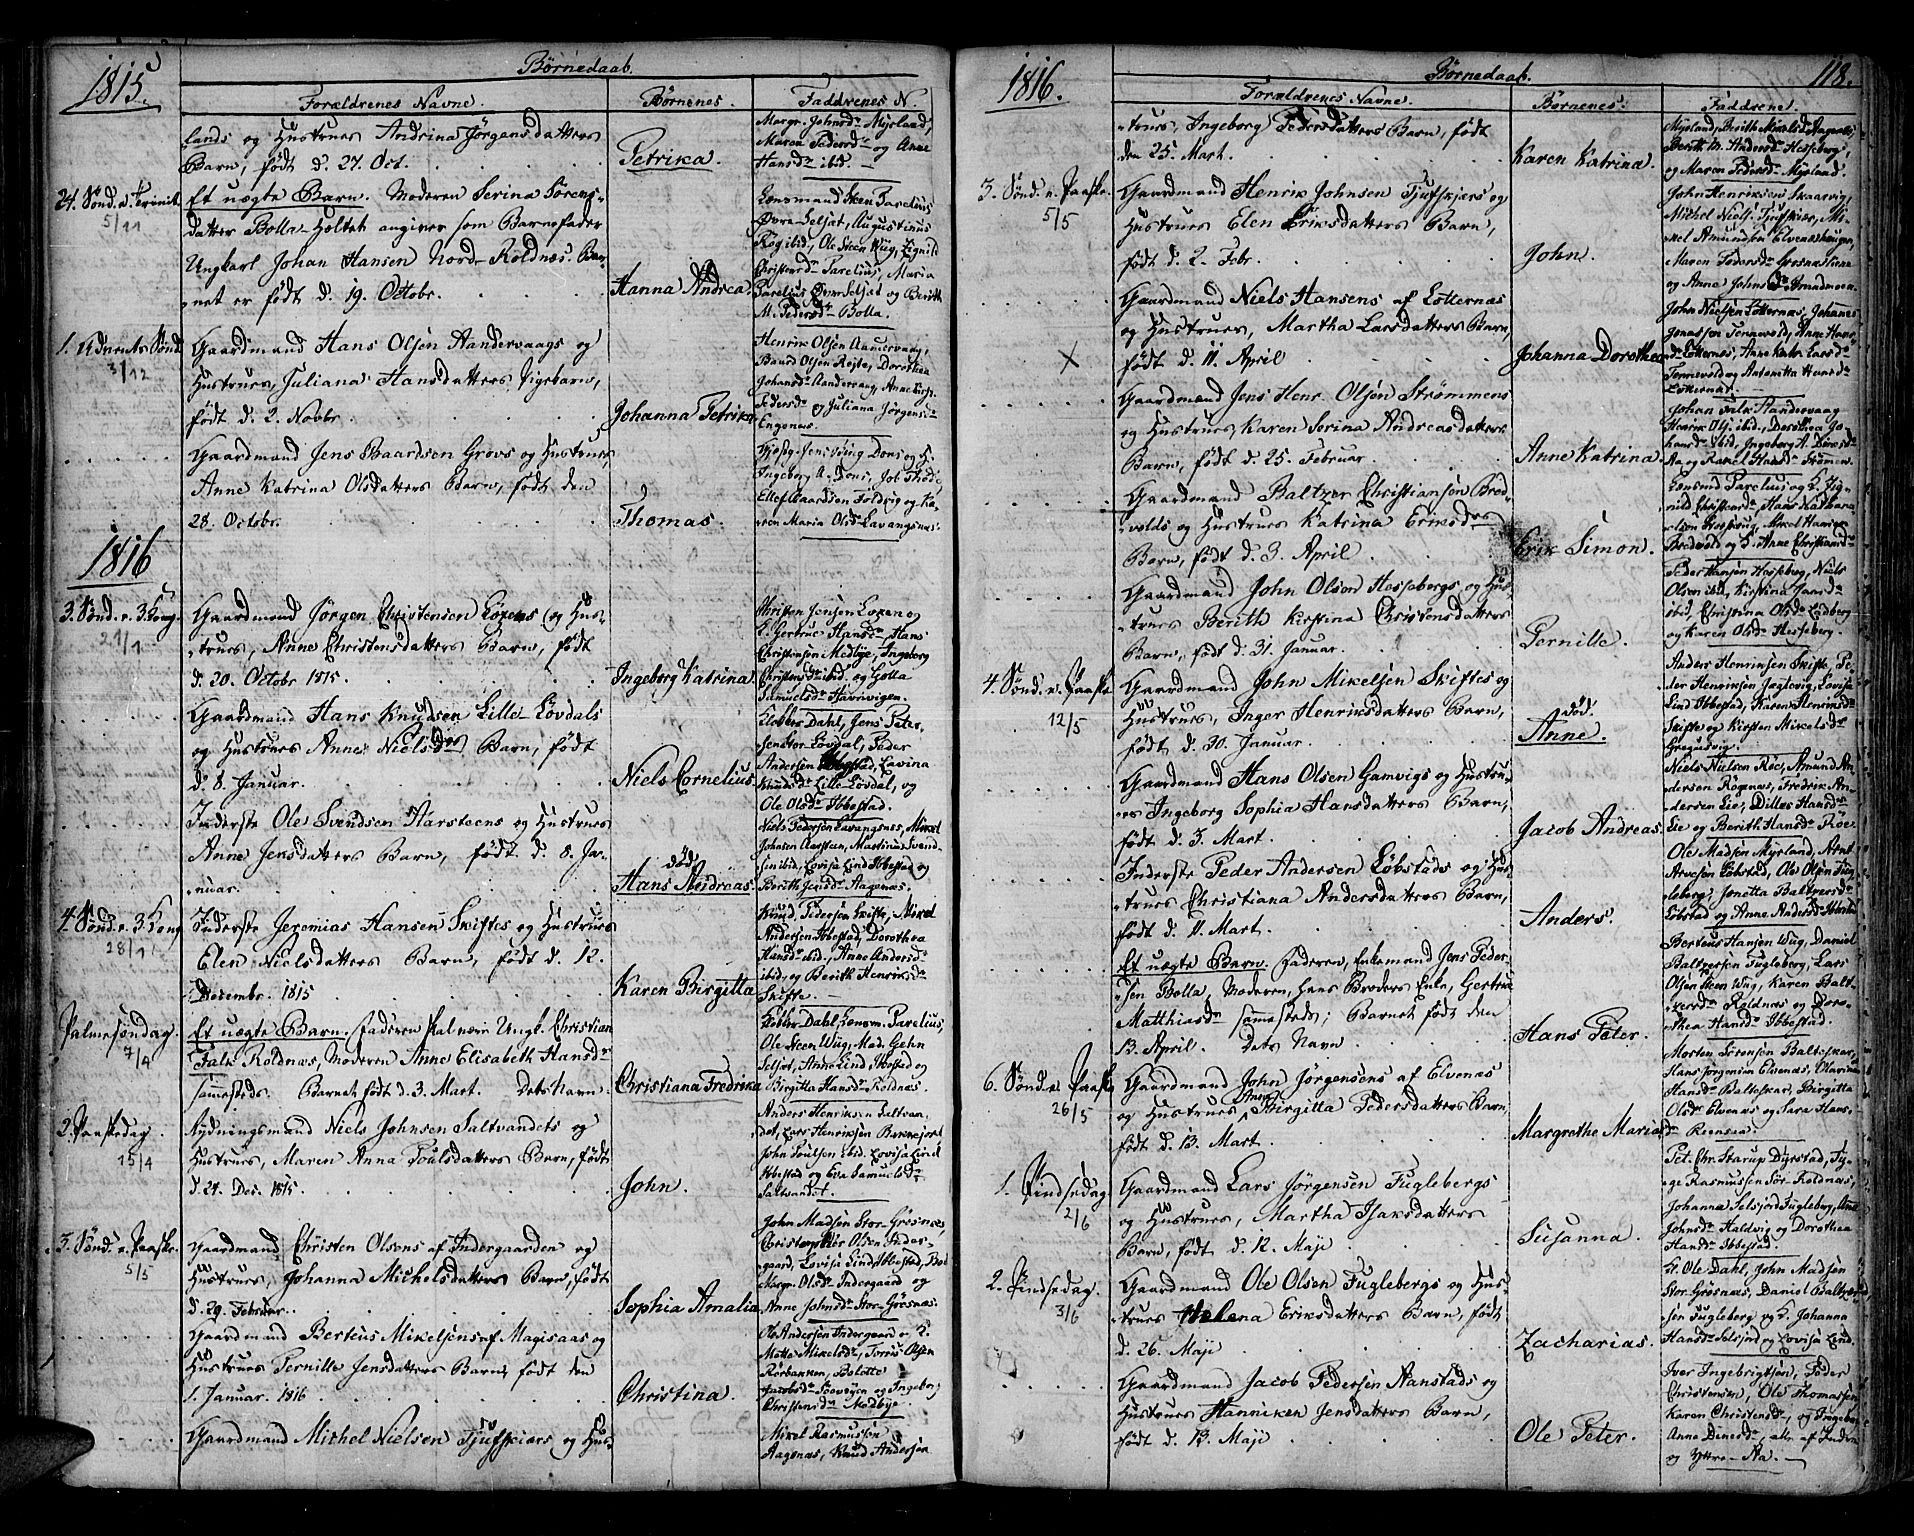 1815.
Børnedaab.
Forældrenes Navne.
Børnenes.
Faddrenes N.
lands og Hustrues Andrina Jörgensdatters
Barn, født d. 27. Oct.
Petrika.
Margr. Johnsdr Myrland,
Maren Pedersdr og Anne
Hansdr ibid.
24. Sönd. e. Trinit.
5/11
Et uægte Barn. Moderen Serina Sörens-
datter Bolla-Hæltet angiver som Barnefader
Ungkarl Johan Hansen Nord-Roldnæs. Bar-
net er født d. 19. Octobr.
Hanna Andrea.
Lensmand Steen Parelius
Øvre Seljæt, Augustinus
ibid, Ole Steen Wüg,
Christensdr Parelius, Maria
Parelius Øvre Seljæt og Berith
M. Pedersdr Bolla.
1. Advents Sönd.
3/12
Gaardmand Hans Olsen Aandervaags og
Hustrues, Juliana Hansdatters Pigebarn,
født d. 2. Novbr.
Johanna Petrika
Henrik Olsen Aandervaag,
Baard Olsen Rejte, Dorothea
Johansdr Aandervaag, Anne Kirst.
Pedersdr og Juliana Jörgensdr
Engenæs.
Gaardmand Jens Baardsen Grovs og Hustrues,
Anne Katrina Olsdatters Barn, født den
28. Octobr.
Thomas.
Jens Wing Dons og H.
Ingeborg A. Dons, Job Thode,
Ellef Baardsen Foldvig og Ka-
ren Maria Olsdr Lavangsnæs.
1816
3. Sönd. e. 3 Kong.
21/1
Gaardmand Jörgen Christensen Löxens og Hus-
trues, Anne Christensdatters Barn, født
d. 20. Octobr 1815.
Ingeborg Katrina.
Christen Jensen Loxen og
H. Gertrue Hansdr, Hans
Christensen Medbye, Ingeborg
Christensdr ibid. og Golla
Samuelsdr Havnvigen.
Gaardmand Hans Knudsen Lille-Lövdals
og Hustrues Anne Nielsdrs Barn, født
d. 8 Januar.
Niels Cornelius.
Klokker Dahl, Jens Peter-
sen Stor-Lövdal, Peder
Andersen Ibbestad, Lavina
Knudsdr Lille-Lövdal, og
Ole Olsdr Ibbestad.
Inderste Ole Svendsen Aarsteens og Hustrues
Anne Jensdatters Barn, født d. 8. Ja-
nuar.
död
Hans Andreas.
Niels Pedersen Lavangsnæs, Mikel
Johnsen Aarsteen, Martina Svend-
sen ibid, Lovisa Lind Ibbestad og
Berith Jensdr Aagenæs.
4. Sönd. e. 3 Kong
28/1
Inderste Jeremias Hansen Skiftes og Hustrues
Elen Nielsdatters Barn, født d. 12.
Decembr. 1815
Karen Birgitta
Knud Pedersen Skifte, Mikel
Andersen Ibbestad, Dorothea
Hansdr ibid., Anne Andersdr
ibid. og Berith Henriksdr
Skifte.
Palmesöndag.
7/4
Et uægte Barn. Faderen Ungk. Christian
Falk Roldnæs, Moderen Anne Elisabeth Hansdr
sammesteds. Barnet født d. 3. Mart. Dets Navn
Christiana Fredrika
Klokker Dahl, Lensm. Parelius,
Ole Steen Wüg, Mad. Gehn
Seljæt, Anne Lind, Ibbestad og
Birgitta Hansdr Roldnæs.
2. Paaskedag.
15/4
Rydningsmand Niels Johnsen Saltvandets og
Hustrues, Maren Anna Poulsdatters Barn, født
d. 27. Dec. 1815.
John.
Anders Henriksen Saltvan-
det, Lars Henriksen Bakkejord
John Poulsen ibid. Lovisa Lind
Ibbestad og Eva Samuelsdr
Saltvandet.
3. Sönd. e. Paaske.
5/5
Gaardmand Christen Olsens af Indergaarden og
Hustrues, Johanna Michelsdatters Barn, født
d. 29. Februar.
Sophia Amalia
John Madsen Stor-Grösnæs,
Christopher Olsen Inder-
gaard, Lovisa Lind Ibbestad,
Margr. Olsdr Indergaard og
Anne Johnsdr Stor-Grösnæs.
Gaardmand Berteus Mikelsens af Magisaas og
Hustrues Pernille Jensdatters Barn, født den
1. Januar. 1816
Christina.
Ole Andersen Indergaard H.
Mette Mikelsdr, Torris Olsen
Rørbakken, Bolette
Jacobsdr Soevigen og Ingeborg
Christensdr Medbye.
Gaardmand Michel Nielsen Tjufskiærs og Hus-
Mikel Rasmussen
Aagenæs, Knud Andersen
1816.
Børnedaab.
118.
Forældrenes Navne.
Børnenes:
Faddrene.
trues, Ingeborg Pedersdatters Barn, født
den 25. Mart.
Karen Katrina.
Myrland, Berith Mikelsdr Aagenæs,
Berith M. Andersdr Hesseberg,
og Maren Pedersdr Myrland.
3. Sönd. e. Paaske.
5/5
Gaardmand Henrik Johnsen Tjufskjærs og
Hustrues Elen Eriksdatters Barn,
født d. 2. Febr.
John.
John Henriksen Skaarvig,
Michel Niels. Tjufskier, Mi-
kel Amundsen Elvenæshaugen,
Maren Pedersdr Grösnæs
og Anne Johnsdr
Gaardmand Niels Hansens af Lötternæs
og Hustrues, Martha Larsdatters Barn,
født d. 11. April
X
Johanna Dorothea
John Nielsen Lötternæs, Johannes
Jonassen Tennevold, Anne Hans-
dr Lötternæs, Anne Katr. Larsdr
Tennevold og Antonetta Hansdr
Löternæs.
Gaardmand Jens Henr. Olsen Strömmens
og Hustrues, Karen Serina Andreasdatters
Barn, født d. 25. Februar.
Anne Katrina.
Johan Falk Aandervaag
Henrik Ols. ibid., Dorothea Jo-
hansdr ibid, Ingeborg A. Dinesdr
Aa og Rakel Hansdr Strömmen.
Gaardmand Baltzer Christiansen Bred-
volds og Hustrues Katrina Eriksdrs
Barn, født d. 3. April
Erik Simon.
Lensmd Parelius og H.
Christensdr, Hans Kildahl
Mikel Hansen
Bredvold og H. Anne Christiansdr
Gaardmand John Olsen Hessebergs og Hus-
trues Berith Kirstina Christensdatters
Barn, født d. 31. Januar.
Pernille.
Peder Hansen Hesseberg, Niels
Olsen ibid, Kirstina Jansdr
ibid, Christina Olsdr Lidberg
og Karen Olsdr Hesseberg.
4. Sönd. e. Paaske
12/5
Gaardmand John Mikelsen Skiftes og
Hustrues, Inger Henriksdatters Barn,
født d. 30. Januar.
död.
Anne.
Anders Henriksen Skifte, Pe-
der Henriksen Jægtevig, Lovisa
Lind Ibbestad, Karen Henriksdr
Skifte og Kirsten Mikelsdr
Gregusvig.
Gaardmand Hans Olsen Gamvigs og Hustru-
es Ingeborg Sophia Hansdatters Barn,
født d. 3. Mart.
Jacob Andreas.
Niels Nielsen Röe, Amund An-
dersen Rögenæs, Fredrik An-
dersen Lie, Dilles Hansdr
Lie og Berith Hansdr Röe.
Inderste Peder Andersen Löbstads og Hus-
trues Christiana Andersdatters Barn,
født d. 11. Mart.
Anders.
Ole Madsen Myrland, Arnt
Arvesen Löbstad, Ole Olsen Fug-
leberg, Jonetta Baltzersdr
Löbstad og Anne Andersdr Ibbestad
Et uægte Barn. Faderen, Enkemand Jens Peder-
sen Bolla, Moderen, Hans Broders Enke, Gertrue
Matthiasdr sammesteds; Barnet født den
13. April. Dets Navn
Hans Peter.
Berteus Hansen Wüg, Daniel
Baltzersen Fugleberg, Lars
Olsen Steen Wüg, Karen Balt-
zersdr Roldnæs og Doro-
thea Hansdr Ibbestad.
6. Sönd. e. Paaske
26/5
Gaardmand John Jörgensens af Elvenæs
og Hustrues Birgitta Pedersdatters Barn
født d. 13. Mart.
Margrethe Maria
Morten Sörensen Balteskar,
Hans Jörgensen Elvenæs, Olavina
Hansdr Balteskar, Birgitta
Olsdr Elvenæs og Sara Hans-
dr Reensaa.
1. Pindsedag.
2/6
Gaardmand Lars Jörgensen Fuglebergs
og Hustrues, Martha Isaksdatters
Barn, født d. 12. Maji
Susanna.
Pet. Chr. Starup Dyrstad,
Rasmussen Sör-Roldnæs,
Johanna Selsjord Fugleberg, Anne
Johnsdr Haldvig og Dorothea
Hansdr Ibbestad.
2. Pindsedag.
3/6
Gaardmand Ole Olsen Fuglebergs og Hus-
trues Helena Eriksdatters Barn, født
d. 26. Maji
Zacharias.
Kl. Ole Dahl, John Madsen
Stor-Grösnæs, Daniel Baltzer-
sen Fugleberg og H. Johanna
Hansdr Selsjord og Lovisa Lind.
Gaardmand Jacob Pedersen Aanstads og
Hustrues Hanniken Jensdatters Barn,
født d. 13. Maji
Ole Peter.
Iver Ingebrigtsen, Peder
Christensen, Ole Thomassen
Karen Christensdr, og Ingebor
Anna Dinesdr, alle af Indre
og Yttre-Aa.